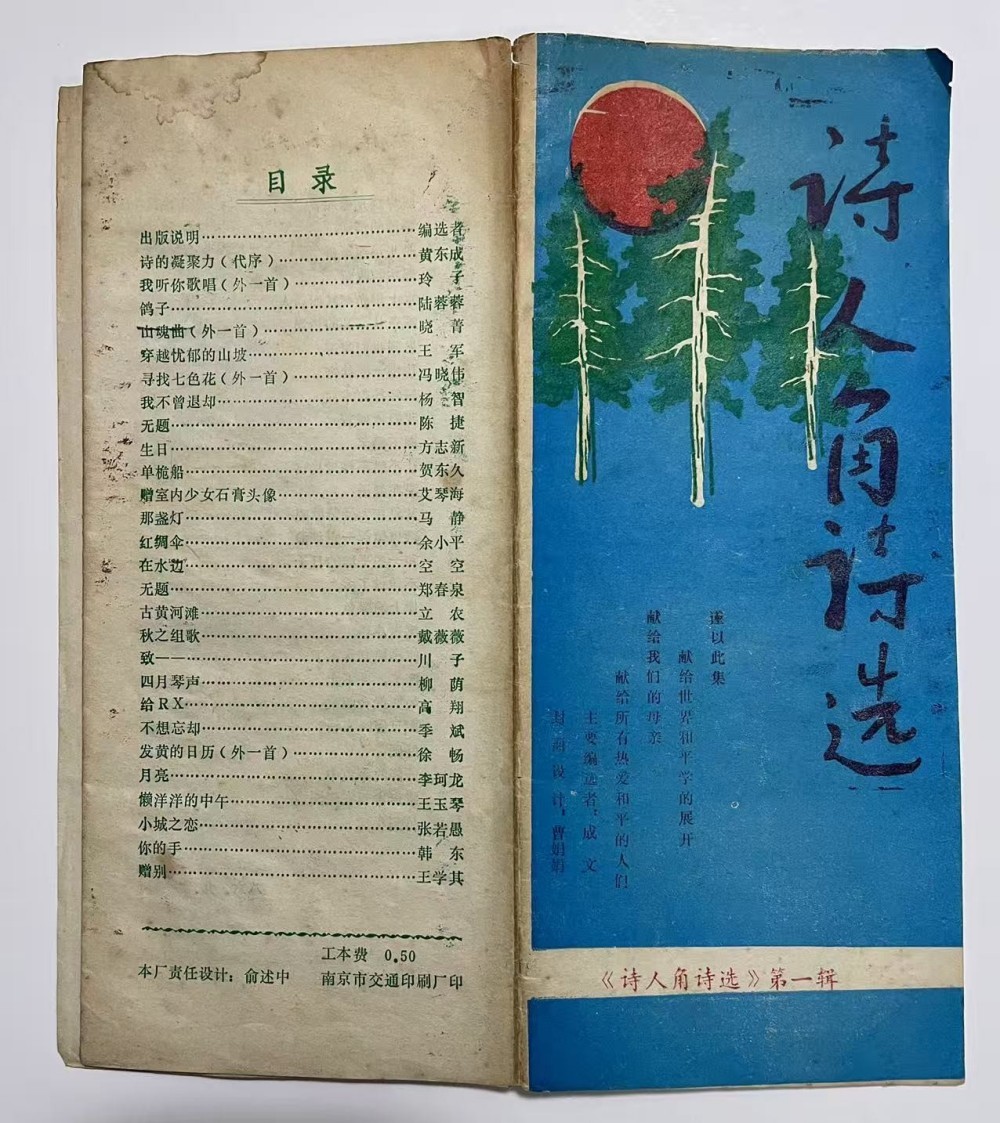 目录
出版说明……编选者
诗的凝聚力（代序）……黄东成
我听你歌唱（外一首）……玲 子
鸽子……陆蓉蓉
山魂曲（外一首）……晓 菁
穿越忧郁的山坡……王 军
寻找七色花（外一首）……冯晓伟
我不曾退却……杨 智
无题……陈 捷
生日……方志新
单桅船……贺东久
赠室内少女石膏头像……艾琴海
那盏灯……马 静
红绸伞……余小平
在水边……空 空
无题……郑春泉
古黄河滩……立 农
秋之组歌……戴薇薇
致——……川 子
四月琴声……柳 荫
给RX……高 翔
不想忘却……季 斌
发黄的日历（外一首）……徐 畅
月亮……李珂龙
懒洋洋的中午……王玉琴
小城之恋……张若愚
你的手……韩 东
赠别……王学其
工本费 0.50
本厂责任设计：俞述中 南京市交通印刷厂印
诗人角诗选
谨以此集
献给世界和平学的展开
献给我们的母亲
献给所有热爱和平的人们
主要编选者：成 文
封面设计：曹娟娟
《诗人角诗选》第一辑